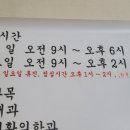 시간
일 오전 9시 ~ 오후 6시
일 오전 9시 ~ 오후 2시
일요일 휴진, 점심시간 오후 1시 ~ 2시
과목
내과